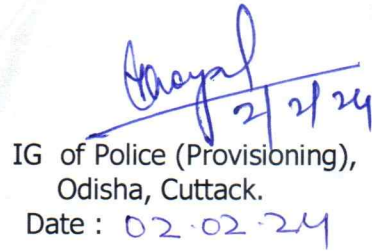 2/2/24
IG of Police (Provisioning),
Odisha, Cuttack.
Date : 02.02.24